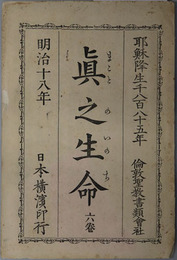 耶穌降生千八百八十五年
倫敦聖教書類會社
眞之生命
まことのいのち
六卷
明治十八年
日本橫濱印行